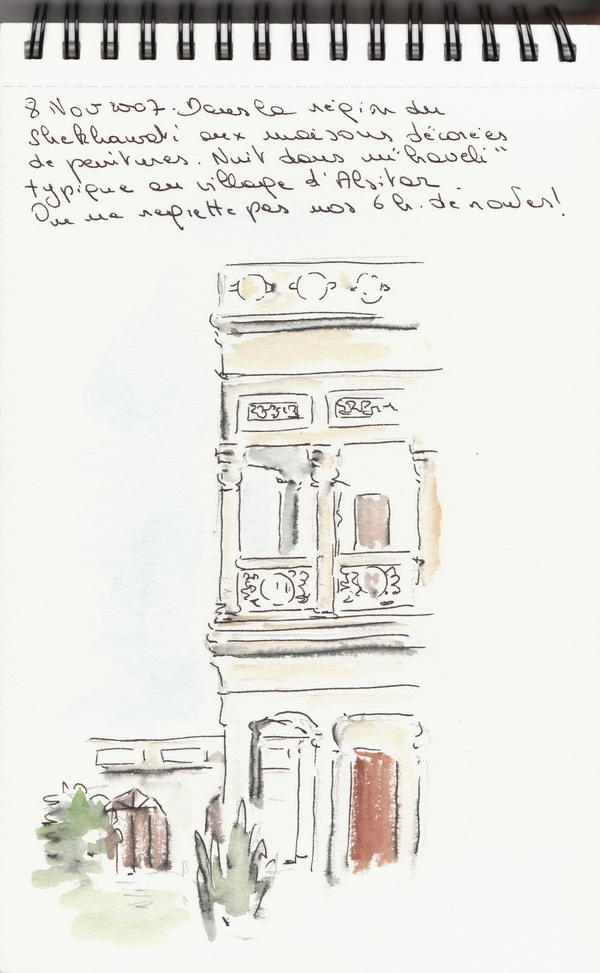 8 Nov 2007. Dans la région du
Shekhawati aux maisons décorées
de peintures. Nuit dans un "haveli"
typique au village d'Alsitar.
On ne regrette pas nos 6 h. de routes!